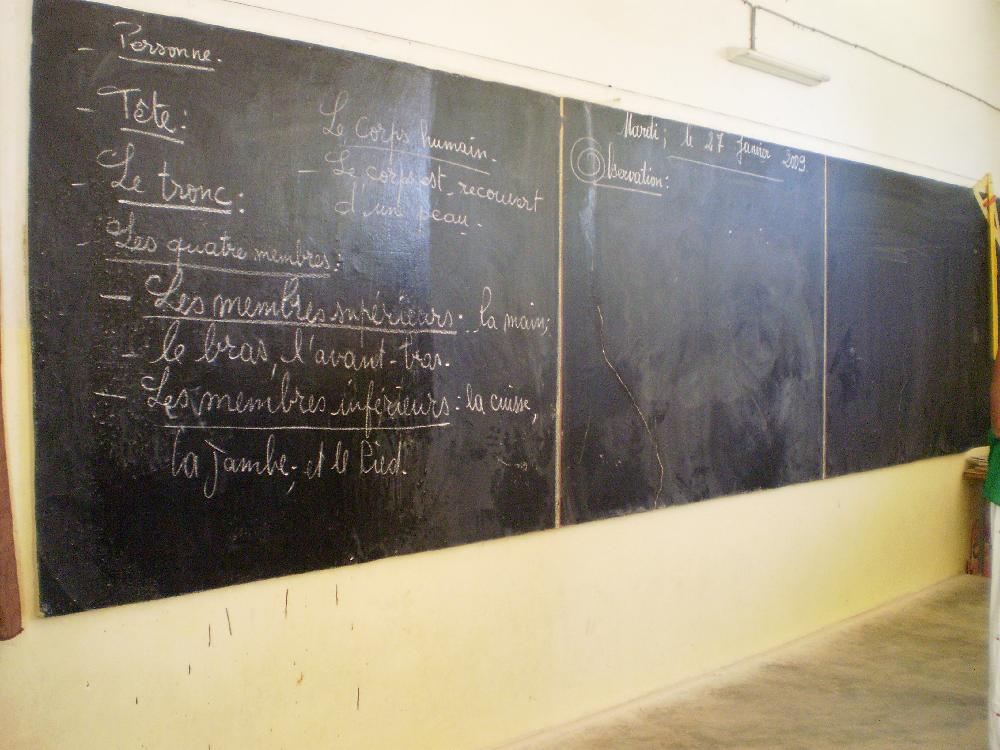 - Personne.
- Tête:
- Le tronc:
- Les quatre membres:
- Les membres supérieurs: la main;
- le bras, l'avant-bras.
- Les membres inférieurs: la cuisse,
la jambe, et le Pied.
Le corps humain.
- Le corps est recouvert
d'une peau.
Mardi; le 27 Janvier 2009.
Observation: